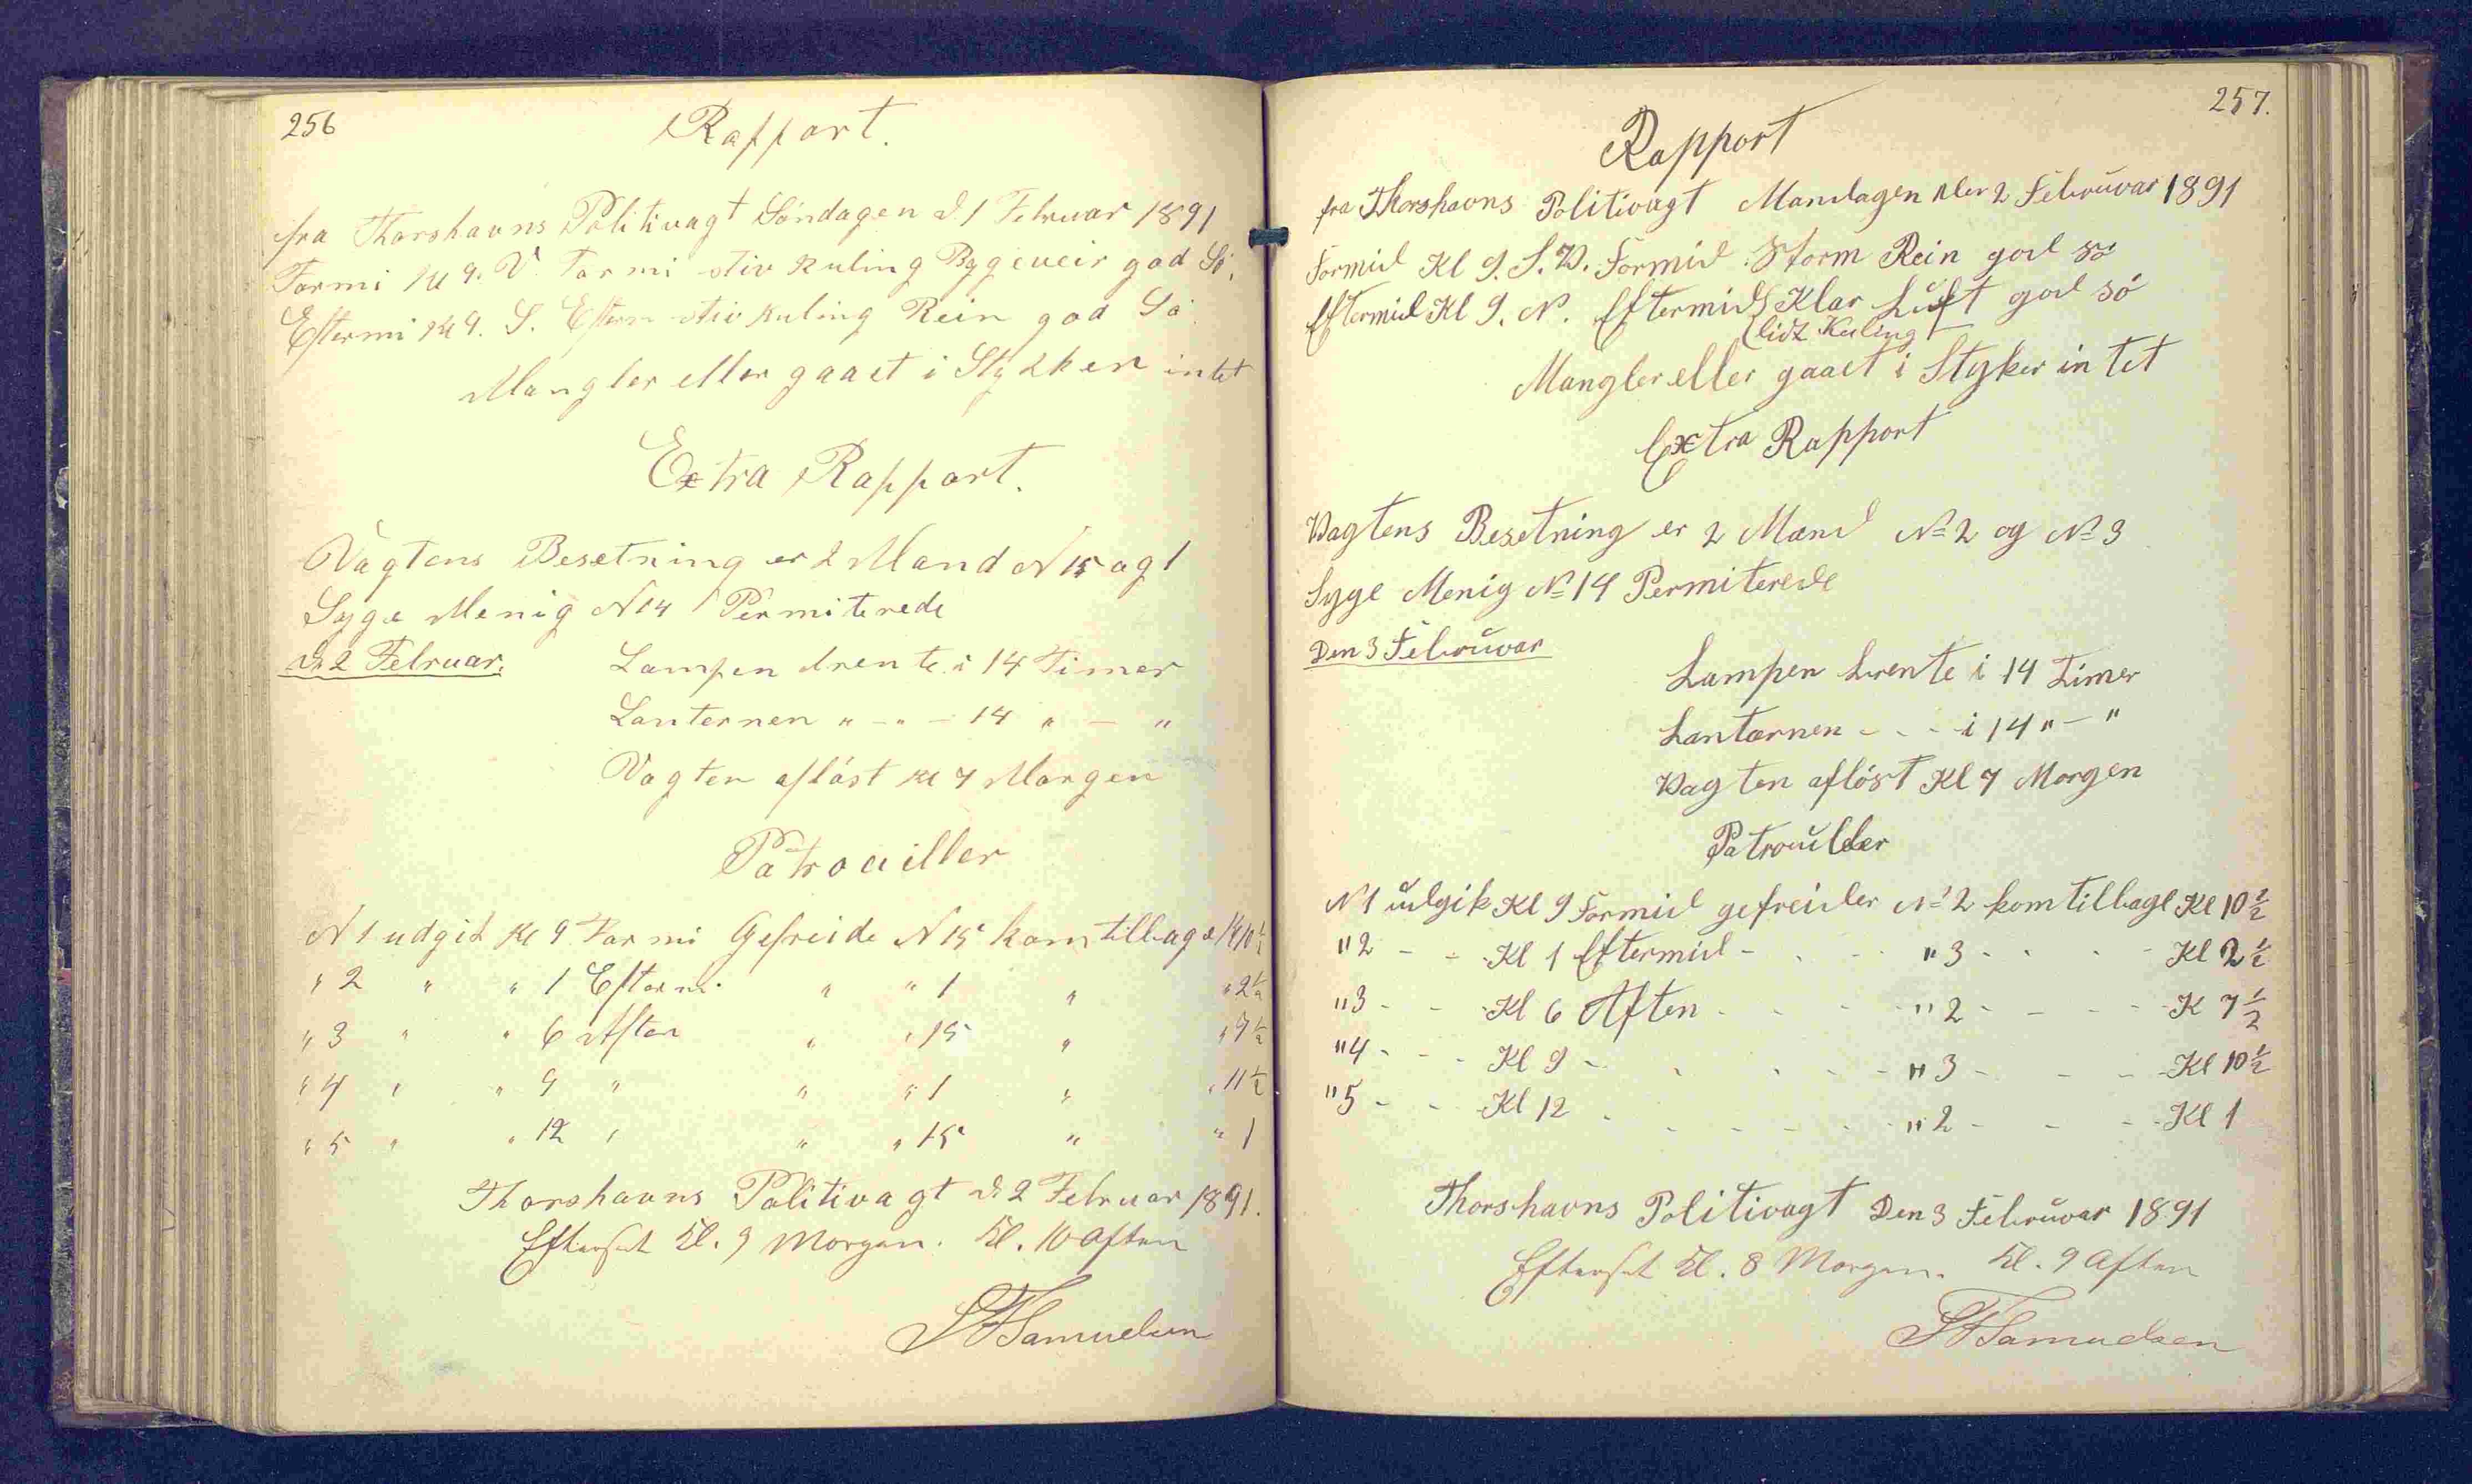 256
Rapport.
fra Thorshavns Politivagt Söndagen d. 1 Februar 1891
Formi Kl 9. V. Formi stiv Kuling Bygeveir god Sö.
Eftermi Kl 9. S. Efterm stiv Kuling Rein god Sö
Mangler eller gaaet i Stykker intet
Extra Rapport.
Vagtens Besetning er 2 Mand N 15 og 1
Syge Menig N 14 Permiterede
d. 2 Februar. Lampen brente i 14 Timer
Lanternen " - " - 14 " - "
Vagten aflöst Kl 7 Morgen
Patrouiller
N 1 udgik Kl 9 Formi Gefreide N 15 kom tilbage Kl 10 1/2
" 2 " " 1 Eftermi. " " 1 " " 2 1/2
" 3 " " 6 Aften " " 15 " " 7 1/2
" 4 " " 9 " " " 1 " " 11 1/2
" 5 " " 12 " " " 15 " " 1
Thorshavns Politivagt d. 2 Februar 1891.
Efterset Kl. 9 Morgen. Kl. 10 Aften
SFSamuelsen
257.
Rapport
fra Thorshavns Politivagt Mandagen den 2 Februvar 1891
Formid Kl 9. S.V. Formid. Storm Rein god sö
Eftermid Kl 9. N. Eftermid Klar Luft god sö
lidt Kuling
Mangler eller gaaet i Styker intet
Extra Rapport
Vagtens Besetning er 2 Mand No 2 og No 3
Syge Menig No 14 Permiterede
Den 3 Februvar
Lampen brente i 14 Timer
Lantærnen - - - i 14 " - "
Vagten aflöst Kl 7 Morgen
Patroulder
N 1 udgik Kl 9 Formid gefreider No 2 kom tilbage Kl 10 1/2
" 2 - - Kl 1 Eftermid - - - " 3 - - - Kl 2 1/2
" 3 - - Kl 6 Aften - - - " 2 - - - K 7 1/2
" 4 - - - Kl 9 - - - - - " 3 - - - Kl 10 1/2
" 5 - - - Kl 12 - - - - - " 2 - - - Kl 1
Thorshavns Politivagt Den 3 Februvar 1891
Efterset Kl. 8 Morgen. Kl. 9 Aften
SFSamuelsen